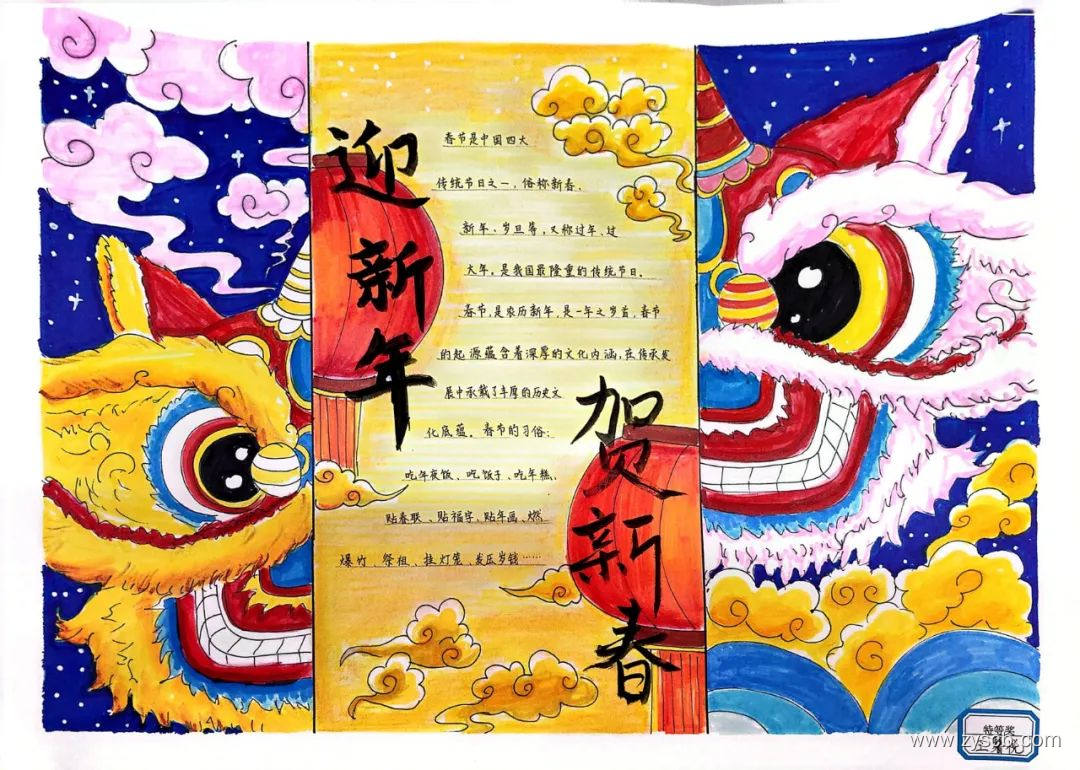 迎新年
春节是中国四大
传统节日之一，俗称新春、
新年、岁旦等，又称过年、过
大年，是我国最隆重的传统节日。
春节，是农历新年，是一年之岁首，春节
的起源蕴含着深厚的文化内涵，在传承发
展中承载了丰厚的历史文
化底蕴。春节的习俗：
吃年夜饭、吃饭子、吃年糕、
贴春联、贴福字、贴年画、燃
爆竹、祭祖、挂灯笼、发压岁钱……
贺新春
特等奖
www.zyscb.com